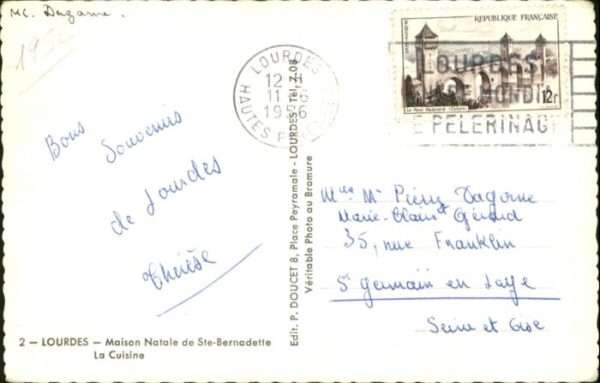 Bons Souvenirs
de Lourdes
Thérèse
2 — LOURDES — Maison Natale de Ste-Bernadette
La Cuisine
Edit. P. DOUCET 8, Place Peyramale - LOURDES - Tél. 7.08
Véritable Photo au Bromure
LOURDES
12 H
11 - 8
1956
HAUTES
REPUBLIQUE FRANÇAISE
12F
LOURDES
PELERINAG
Pierre Dagorne
Marie-Claire et Gérard
35, rue Franklin
St Germain en Laye
Seine et Oise